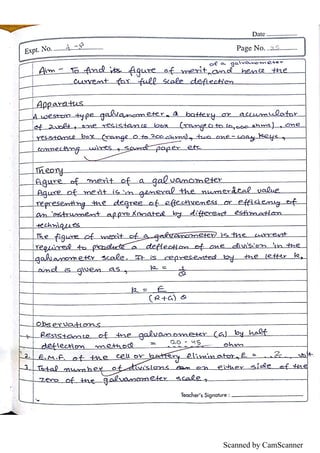 Date
Expt. No. 4-B
Page No. 25
of a galvanometer
Aim - To find its figure of merit and hence the
current for full scale deflection
Apparatus
A weston type galvanometer, a battery or accumulator
of 2 volt, one resistance box (range 0 to 10,000 ohms), one
resistance box (range 0 to 200 ohms), two one-way keys,
connecting wires, sand paper etc
Theory
Figure of merit of a galvanometer
Figure of merit is in general the numerical value
representing the degree of effectiveness or efficiency of
an instrument approximated by different estimation
techniques
The figure of merit of a galvanometer is the current
required to produce a deflection of one division in the
galvanometer scale. It is represented by the letter k,
and is given as, k = I/θ
k = E/(R+G) θ
Observations
1. Resistance of the galvanometer (G) by half
deflection method = 20.45 ohm
2. E.M.F of the cell or battery eliminator, E = 2 volt
3. Total number of divisions on either side of the
zero of the galvanometer scale,
Teacher's Signature :
Scanned by CamScanner